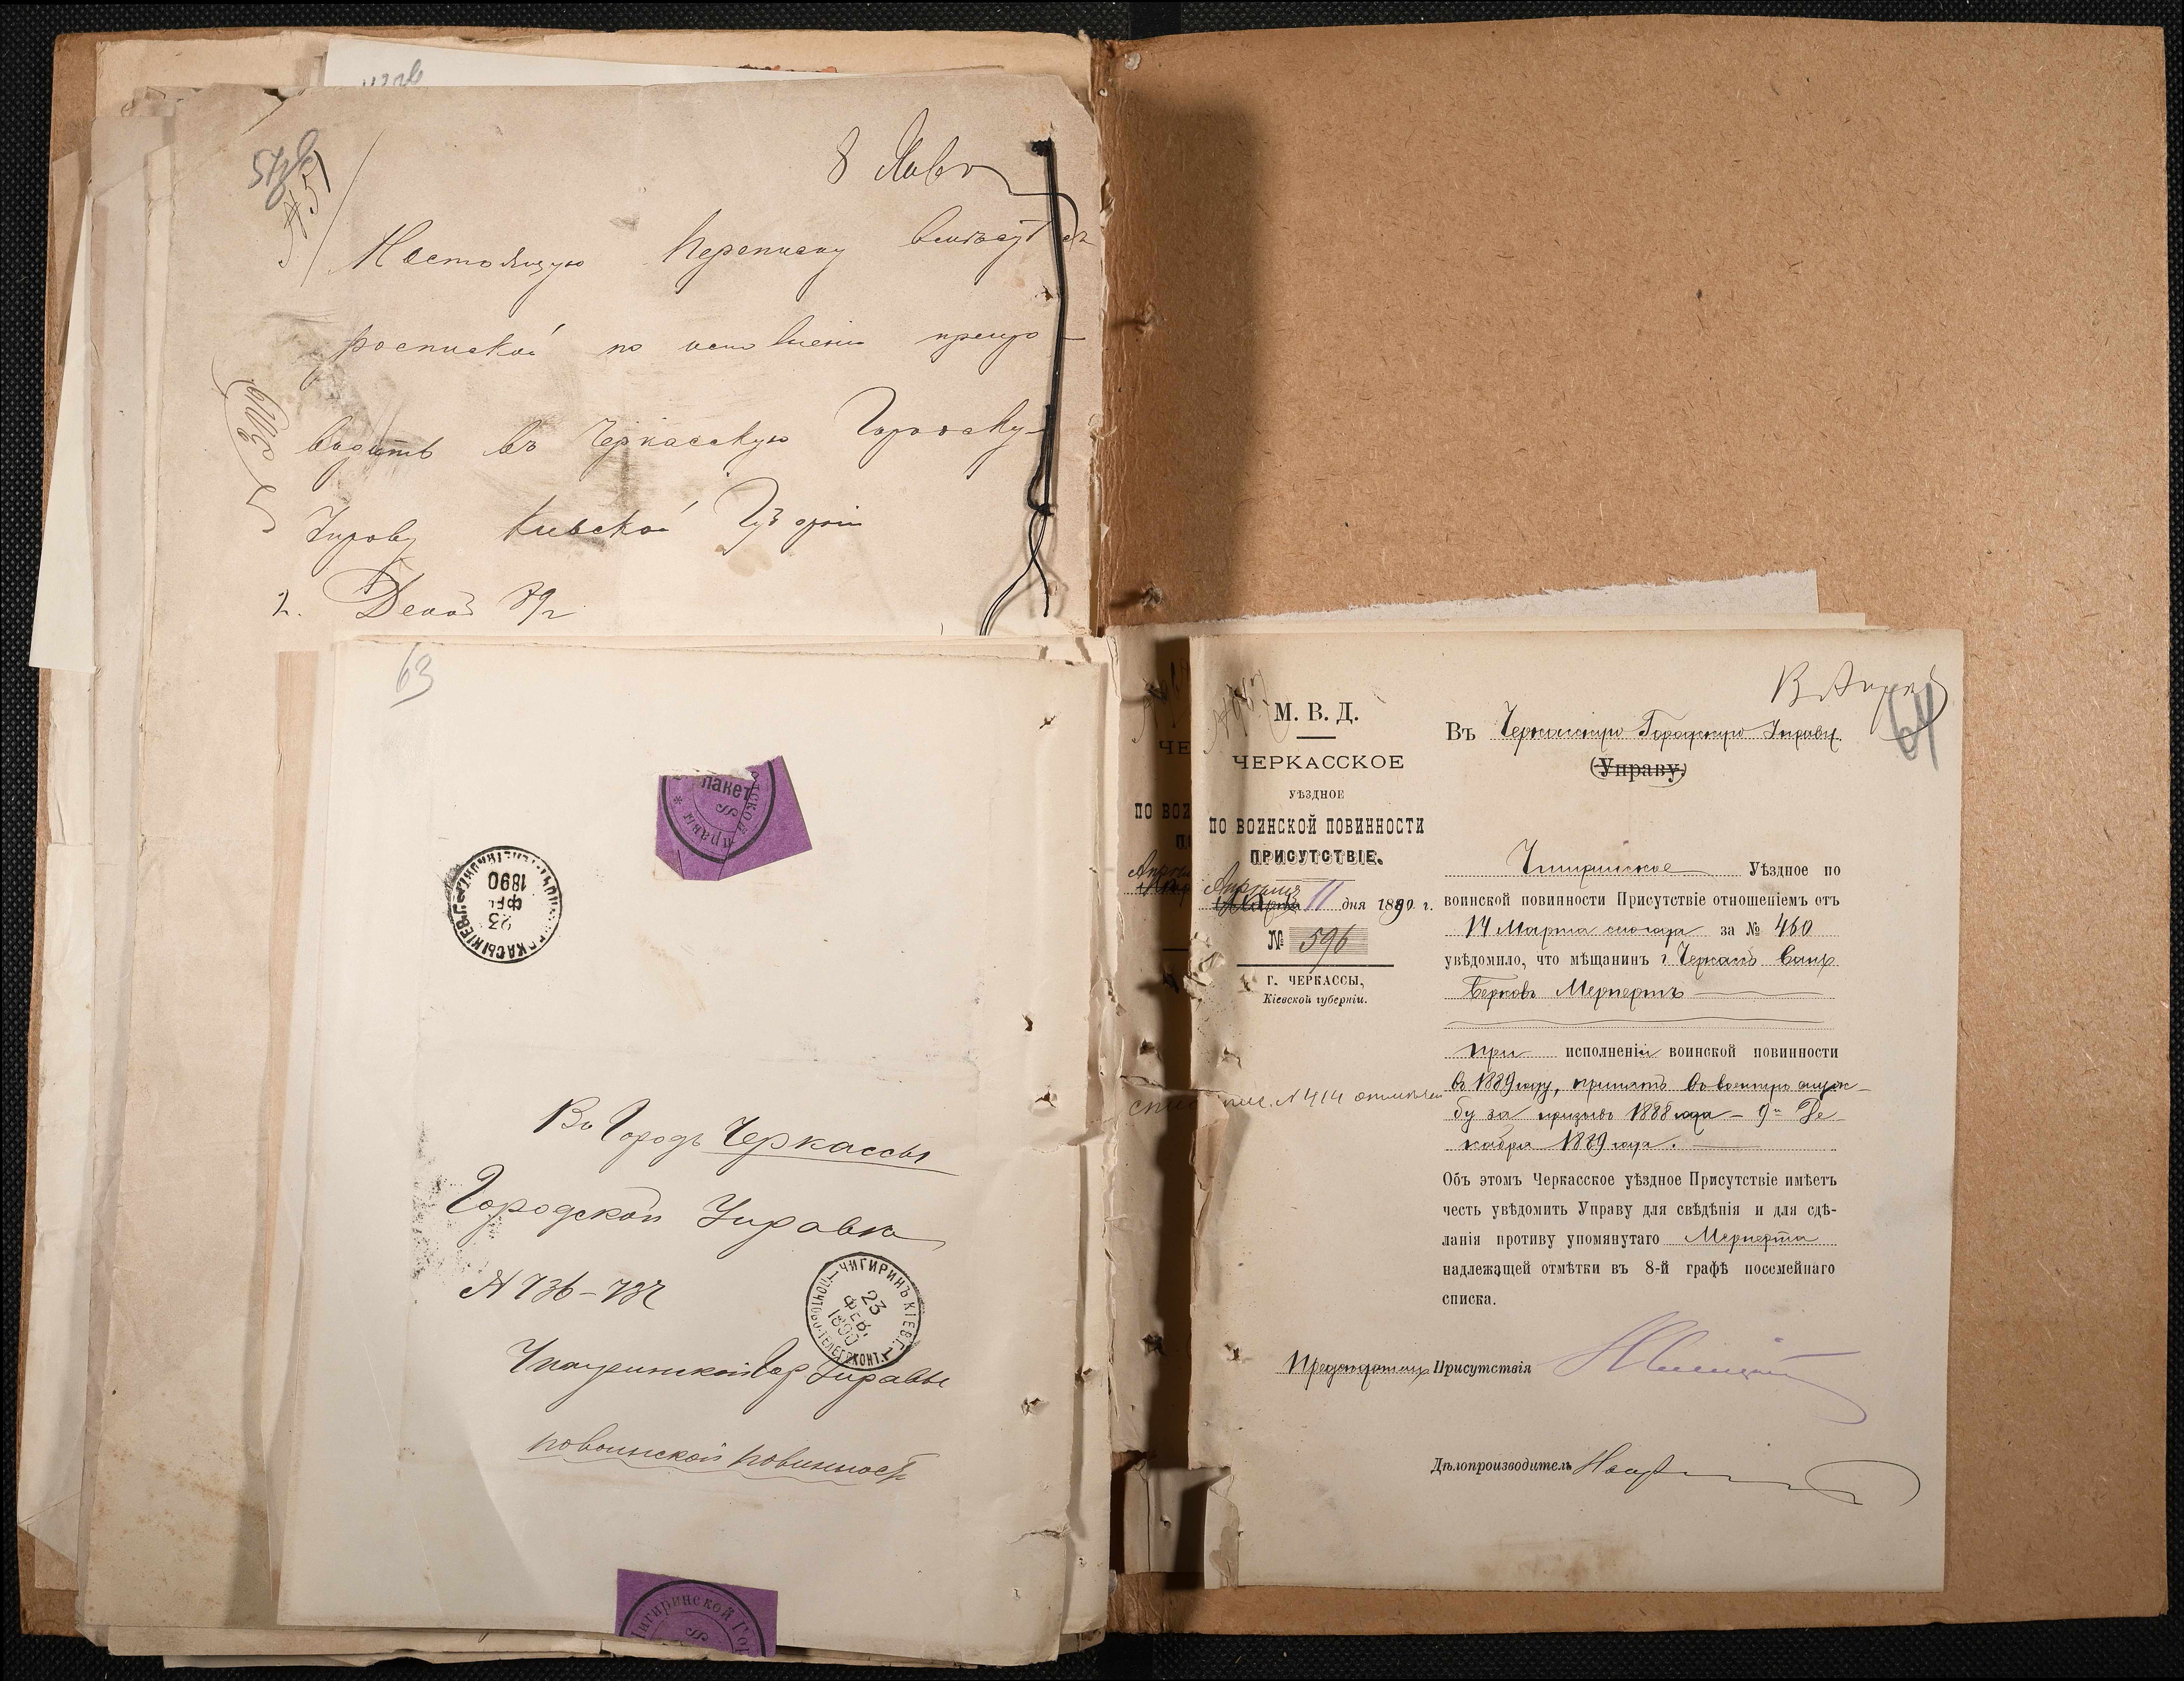 8
Настоящую переписку
роспиской по препро-
водить въ Черкасскую Городску-
Управу Кіевской Губерніи
2. Декаб 89 г
63
пакет
ЧЕРКАСЫ КІЕВ. Г.
23
ФЕВ.
1890
Въ Городъ Черкассы
Городской Управѣ
№ 736-737
ЧИГИРИНЪ КІЕВ. Г.
23
ФЕВ.
1890
Чигиринской Гор Управы
по воинской повинност
Чигиринской Гор
64
М. В. Д.
ЧЕРКАССКОЕ
УѢЗДНОЕ
ПО ВОИНСКОЙ ПОВИННОСТИ
ПРИСУТСТВІЕ.
Апрѣля 11 дня 1890 г.
№ 596
Г. ЧЕРКАССЫ,
Кіевской губерніи.
Въ Черкасскую Городскую Управу
(Управу.)
Чигиринское Уѣздное по
воинской повинности Присутствіе отношеніемъ отъ
14 Марта сего года за № 460
увѣдомило, что мѣщанинъ г. Черкасъ
Берковъ Мерпертъ
при исполненіи воинской повинности
въ 1889 году, принятъ въ военную служ-
бу за призывъ 1888 года - 9го Де-
кабря 1889 года.
№ 414
Объ этомъ Черкасское уѣздное Присутствіе имѣетъ
честь увѣдомить Управу для свѣдѣнія и для сдѣ-
ланія противу упомянутаго Мерперта
надлежащей отмѣтки въ 8-й графѣ посемейнаго
списка.
Предсѣдатель Присутствія
Дѣлопроизводитель